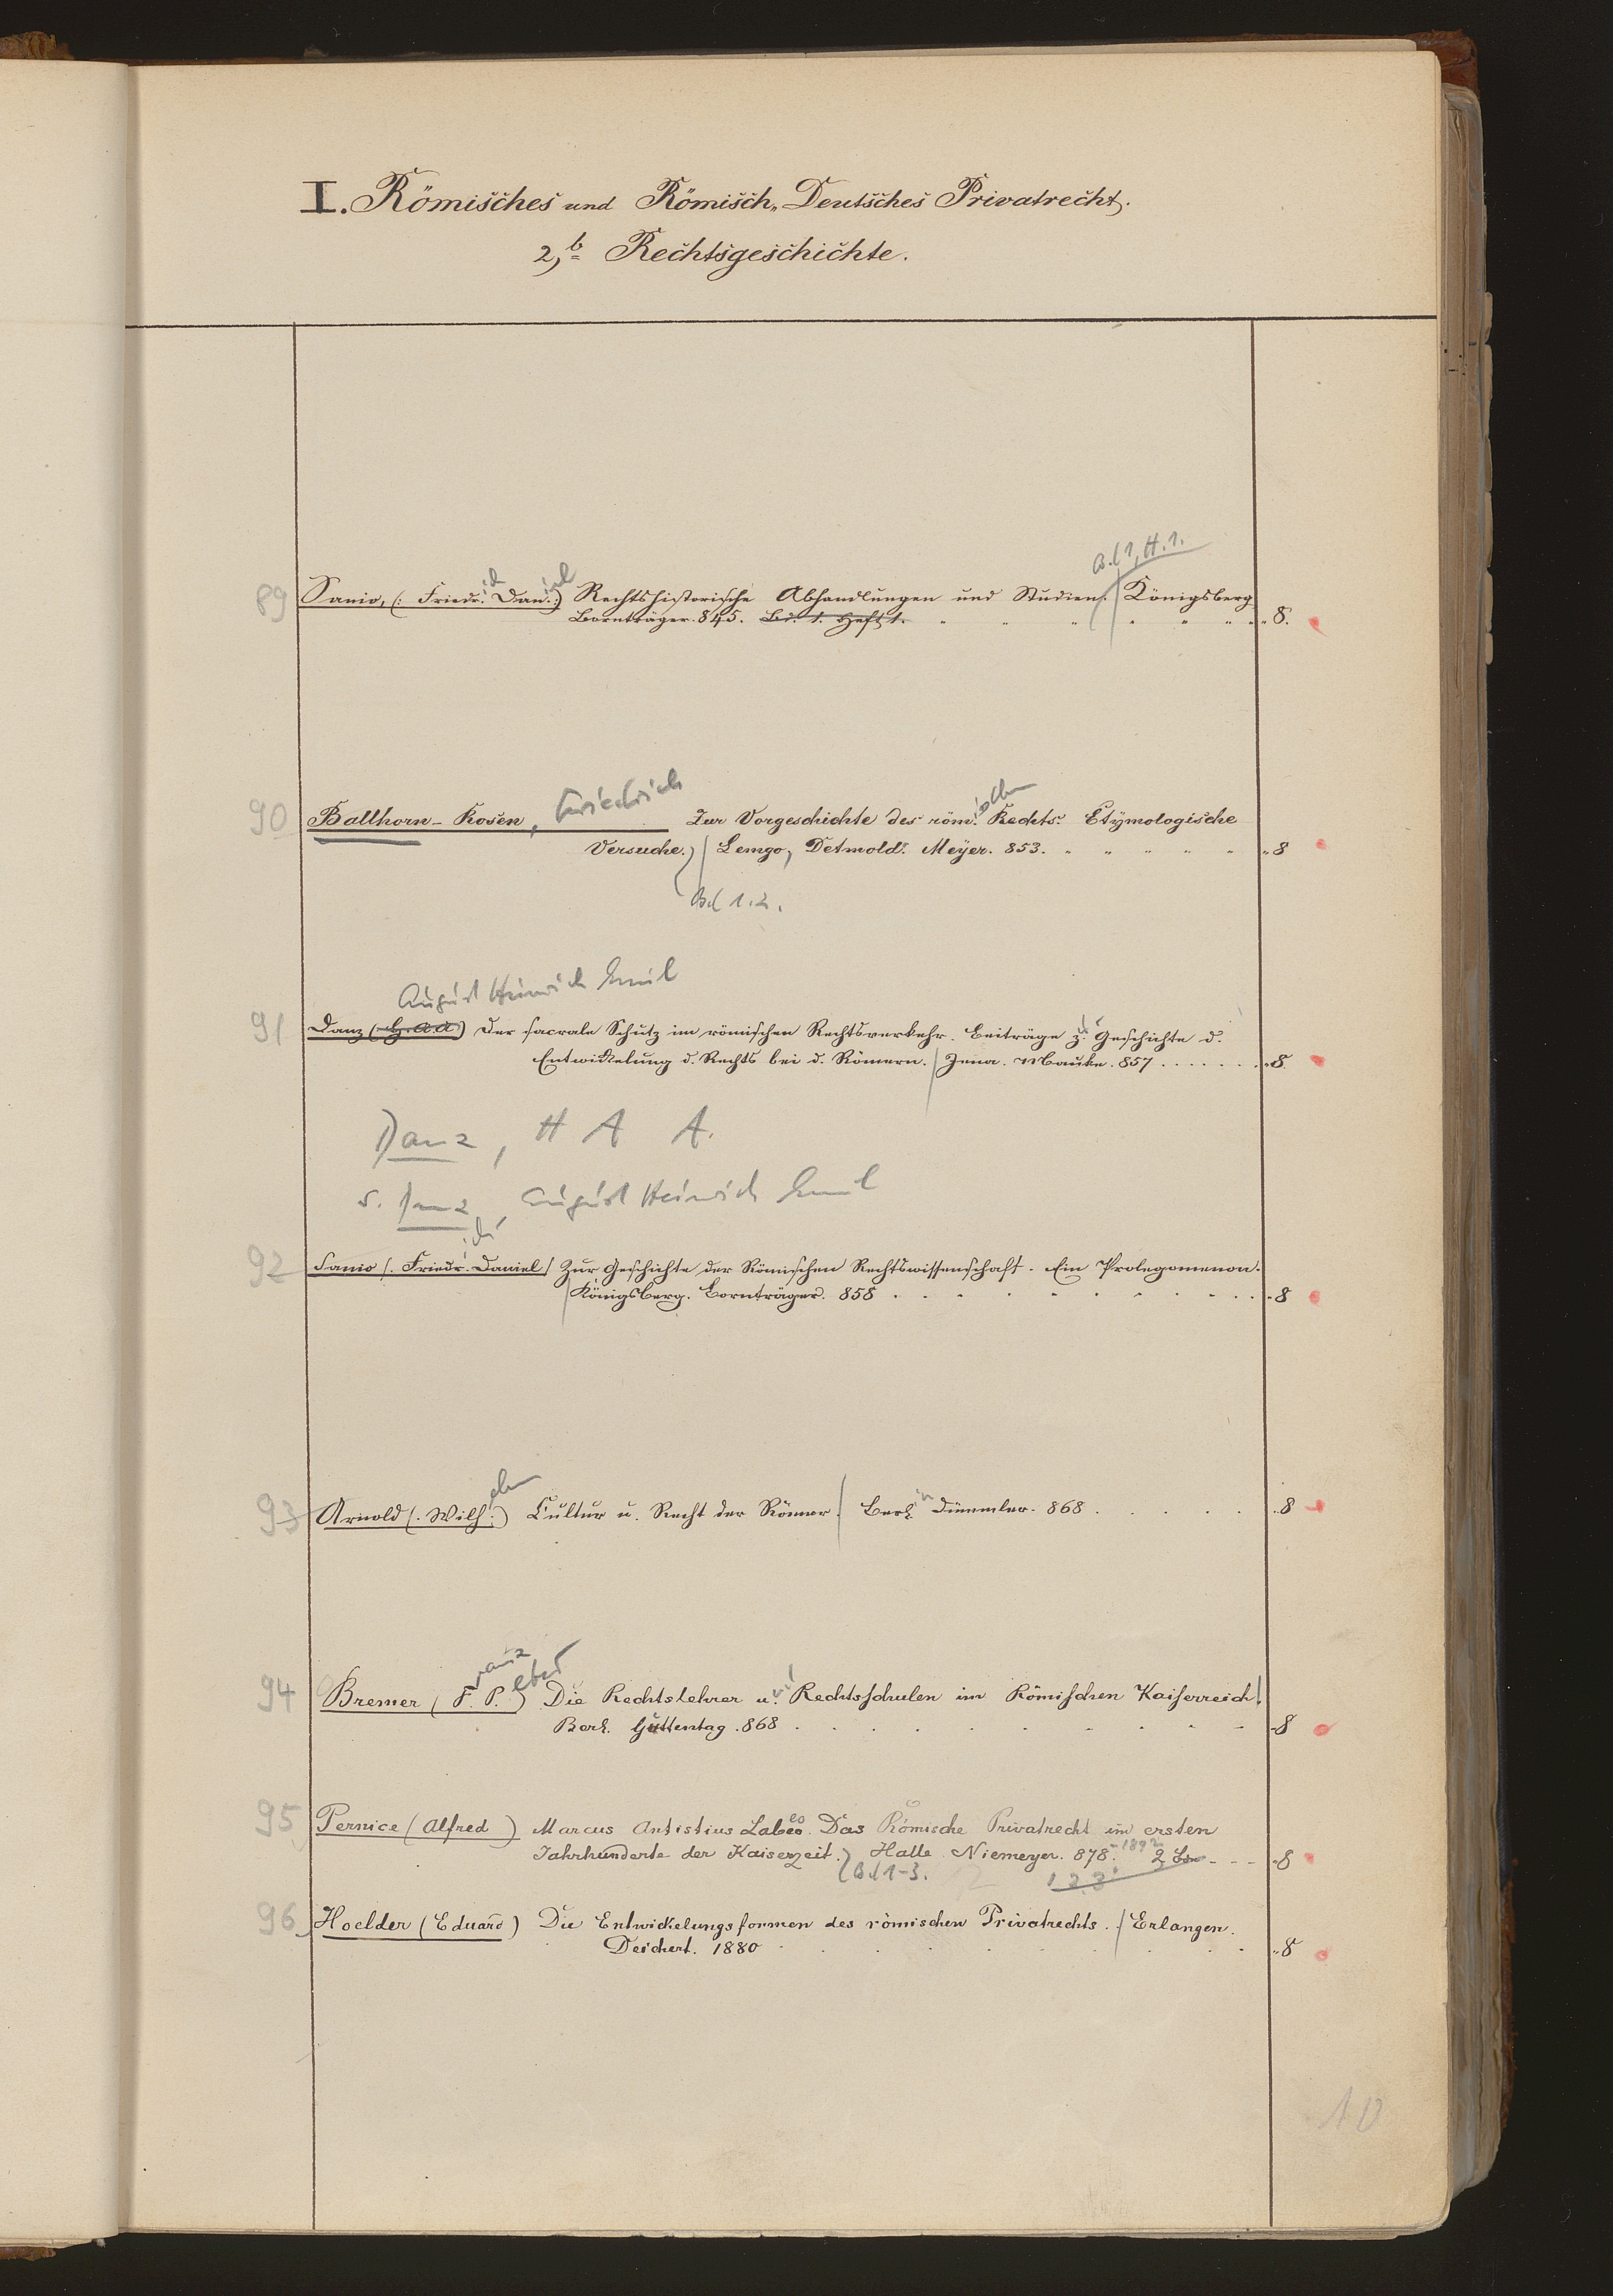 I. Römisches und Römisch-Deutsches Privatrecht.
2,b Rechtsgeschichte.
Bd 1, H. 1.
89 Sanio, (: Friedr. Dan. :) Rechtshistorische Abhandlungen und Studien. Königsberg
Bornträger. 845. Bd. 1. Heft 1. 8.
90 Ballhorn-Rosen, Friedrich Zur Vorgeschichte des röm. Rechts. Etymologische
Versuche. Lemgo, Detmold. Meyer. 853. 8
Bd 1.2.
August Heinrich Emil
91 Danz (H. A. A.) Der sacrale Schutz im römischen Rechtsverkehr. Beiträge z. Geschichte d.
Entwickelung d. Rechts bei d. Römern. Jena. Mauke. 857 8
Danz, H A A.
s. Danz, August Heinrich Emil
92 Sanio (. Friedr. Daniel) Zur Geschichte der Römischen Rechtswissenschaft. Ein Prolegomenon.
Königsberg. Bornträger. 858 8
93 Arnold (. Wilh. :) elm Cultur u. Recht der Römer. Berl. in Dümmler. 868 8
ranz eter
94 Bremer (F. P.) Die Rechtslehrer u. Rechtsschulen im Römischen Kaiserreich
Berl. Guttentag. 868 8
95 Pernice (Alfred) Marcus Antistius Labeo. Das Römische Privatrecht im ersten
Jahrhunderte der Kaiserzeit. Halle Niemeyer. 878. -1892 2 Bde 8
Bd 1-3. 1 2 3
96 Hoelder (Eduard) Die Entwickelungsformen des römischen Privatrechts. Erlangen.
Deichert. 1880 8
10